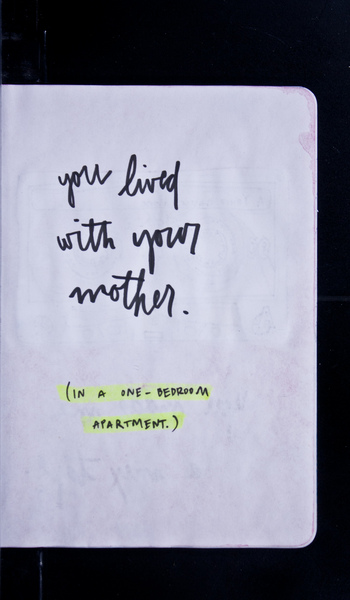 you lived
with your
mother.
(IN A ONE-BEDROOM
APARTMENT.)